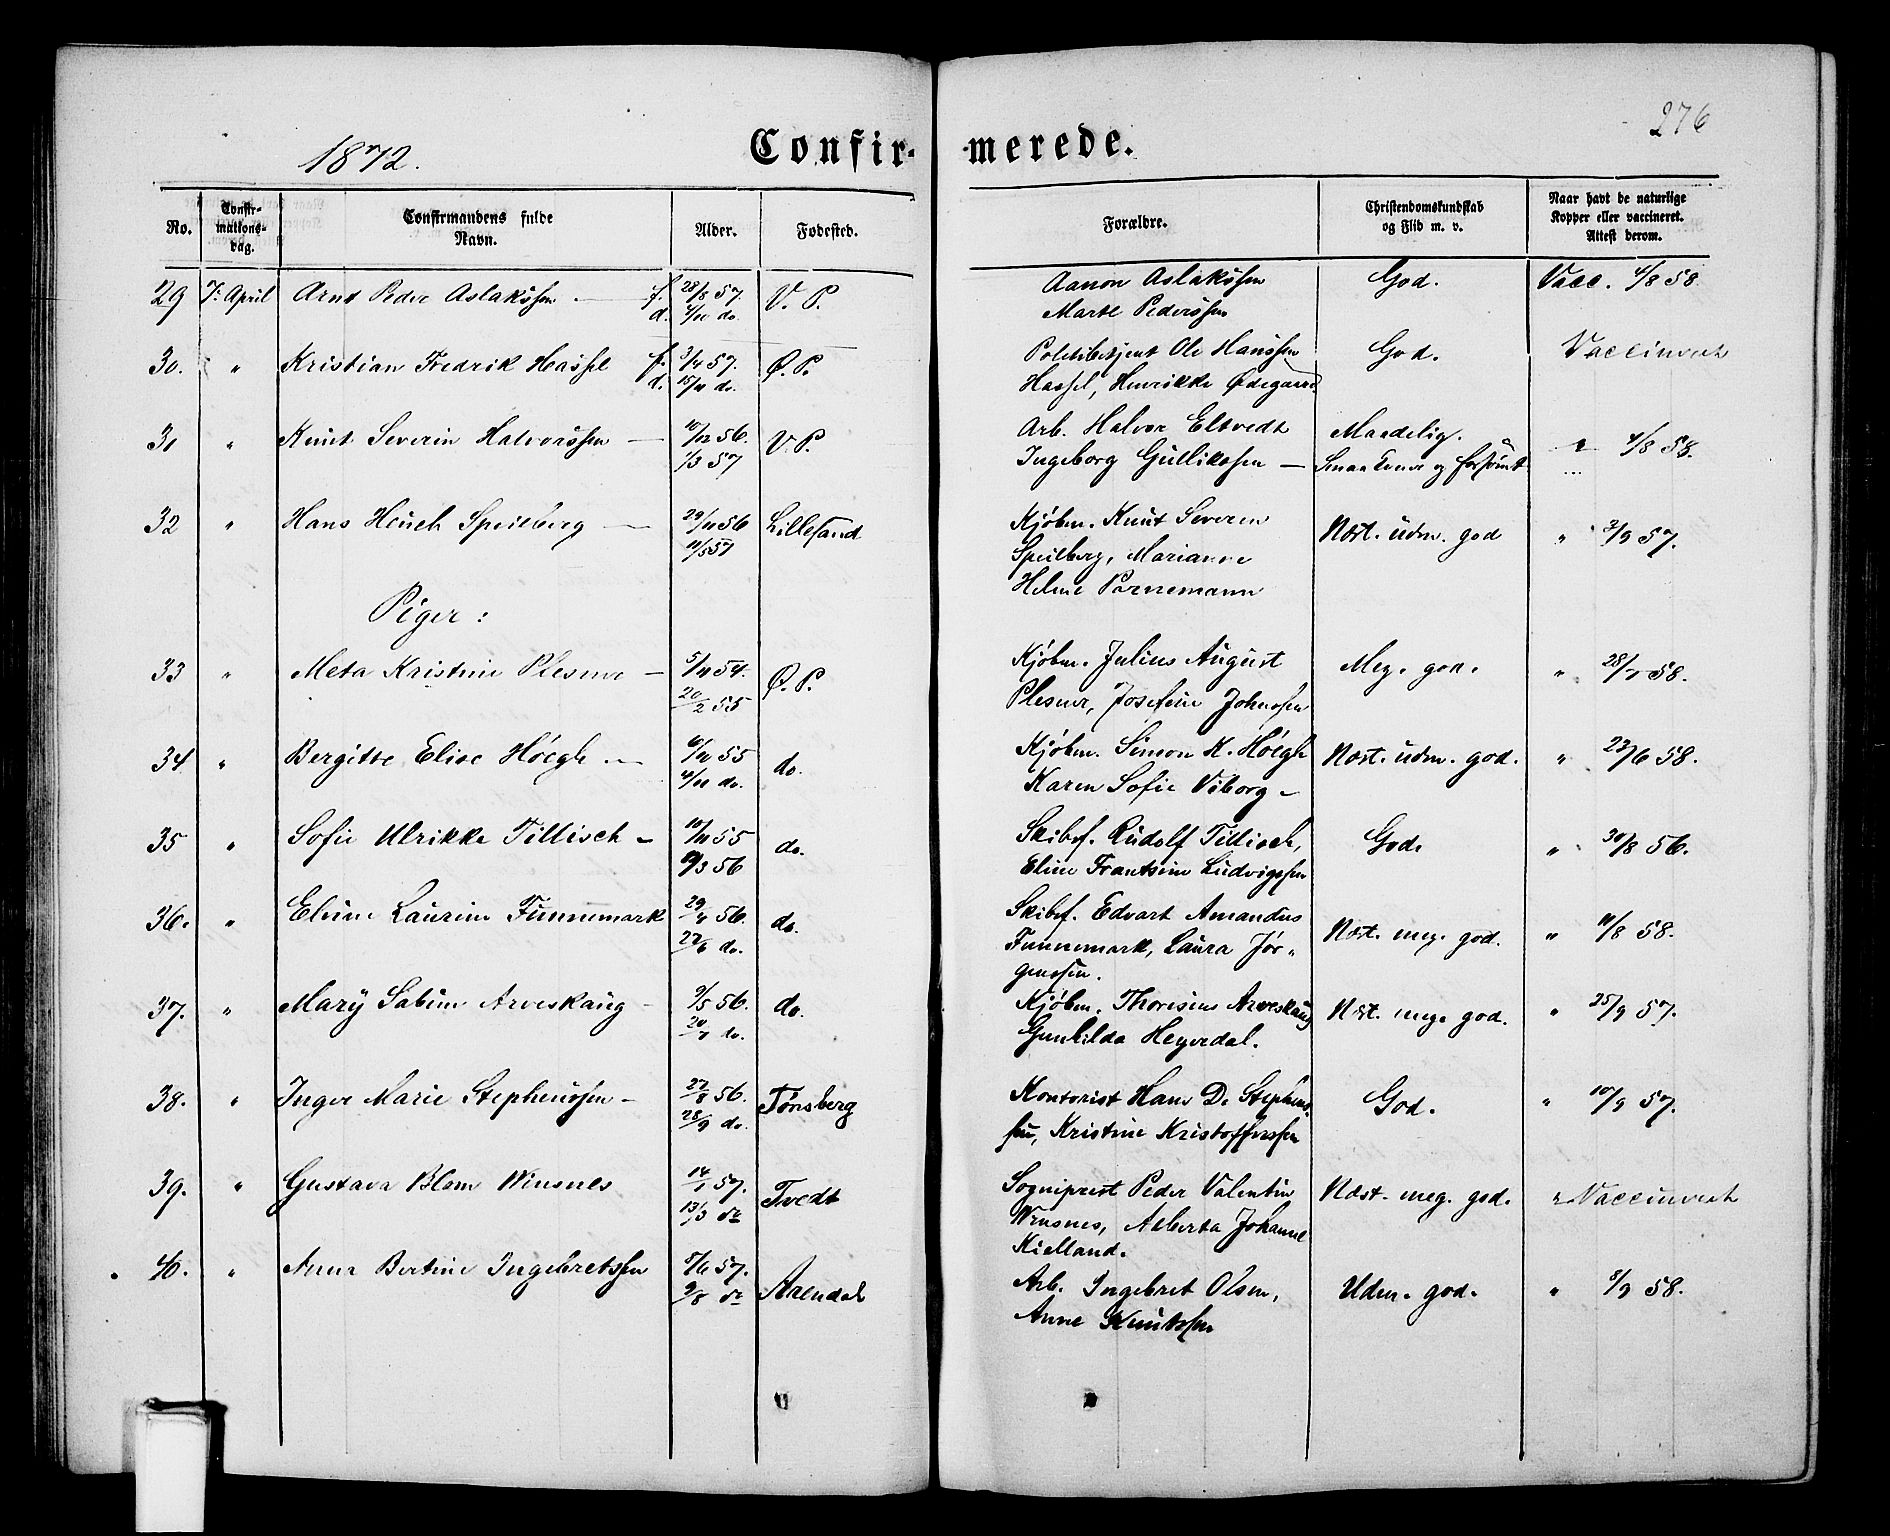 276
1872.
Confir- -merede.
No.
Confir-
mations-
dag.
Confirmandens fulde
Navn.
Alder.
Fødested.
Forældre.
Christendomskundskab
og Flid m. v.
Naar havt de naturlige
Kopper eller vaccineret.
Attest derom.
29 7. April Arnt Peder Aslakssen — f. 28/8 57. V. P. Aanon Aslakssen God. Vacc. 4/8 58.
d. do. Marte Pederssen
30. " Kristian Fredrik Hassel f. 57. Ø. P. Politibetjent Ole Hanssen God. Vaccineret
d. 15/11 do. Hassel, Henrikke Ødegaard
31 " Knut Severin Halvorssen — 10/12 56. V. P. Arb. Halvor Eltvedt Maadelig. " 4/8 58.
1/3 57 Ingeborg Gullikssen — og forsømt
32 " Hans Heuch Speilberg — 29/11 56 Lillesand Kjøbm. Knut Severin Næst. udm. god " 3/9 57.
11/5 57 Speilberg, Marianne
Helene Pornemann
Piger:
33 " Meta Kristine Plesner — 5/11 54. Ø. P. Kjøbm. Julius August Meg. god. " 28/7 58.
20/2 55 Plesner, Josefine Johnssen
34. " Bergitte Elise Höegh — 55 do. Kjøbm. Simon H. Höegh Næst. udm. god. " 23/6 58.
do. Karen Sofie Viborg —
35 " Sofie Ulrikke Tillisch — 10/11 55 do. Skibsf. Rudolf Tillisch, God. " 30/8 56.
9/3 56 Eline Frantsine Ludvigssen
36. " Elvine Laurine Funnemark 29/4 56. do. Skibsf. Edvart Amandus Næst. meg. god. " 11/8 58.
do. Funnemark, Laura Jör-
genssen.
37. " Mary Sabine Arveskaug — 9/5 56. do. Kjøbm. Thorsius Arveskaug Næst. meg. god. " 25/9 57.
20/7 do. Gunhilda Heyerdal.
38. " Inger Marie Stephenssen — 27/8 56. Tönsberg Kontorist Hans D. Stephens- God. " 10/9 57.
28/9 do. sen, Kristine Kristofferssen
39. " Gustava Blom Winsnes 14/1 57. Tvedt Sogneprest Peder Valentin Næst. meg. god. " Vaccineret
13/3 do Winsnes, Alberta Johanne
Kielland.
40. " Anna Bertine Ingebretssen 5/6 57. Arendal Arb. Ingebret Olsen, Udm. god. " 8/9 58.
9/8 do Anne Knutssen